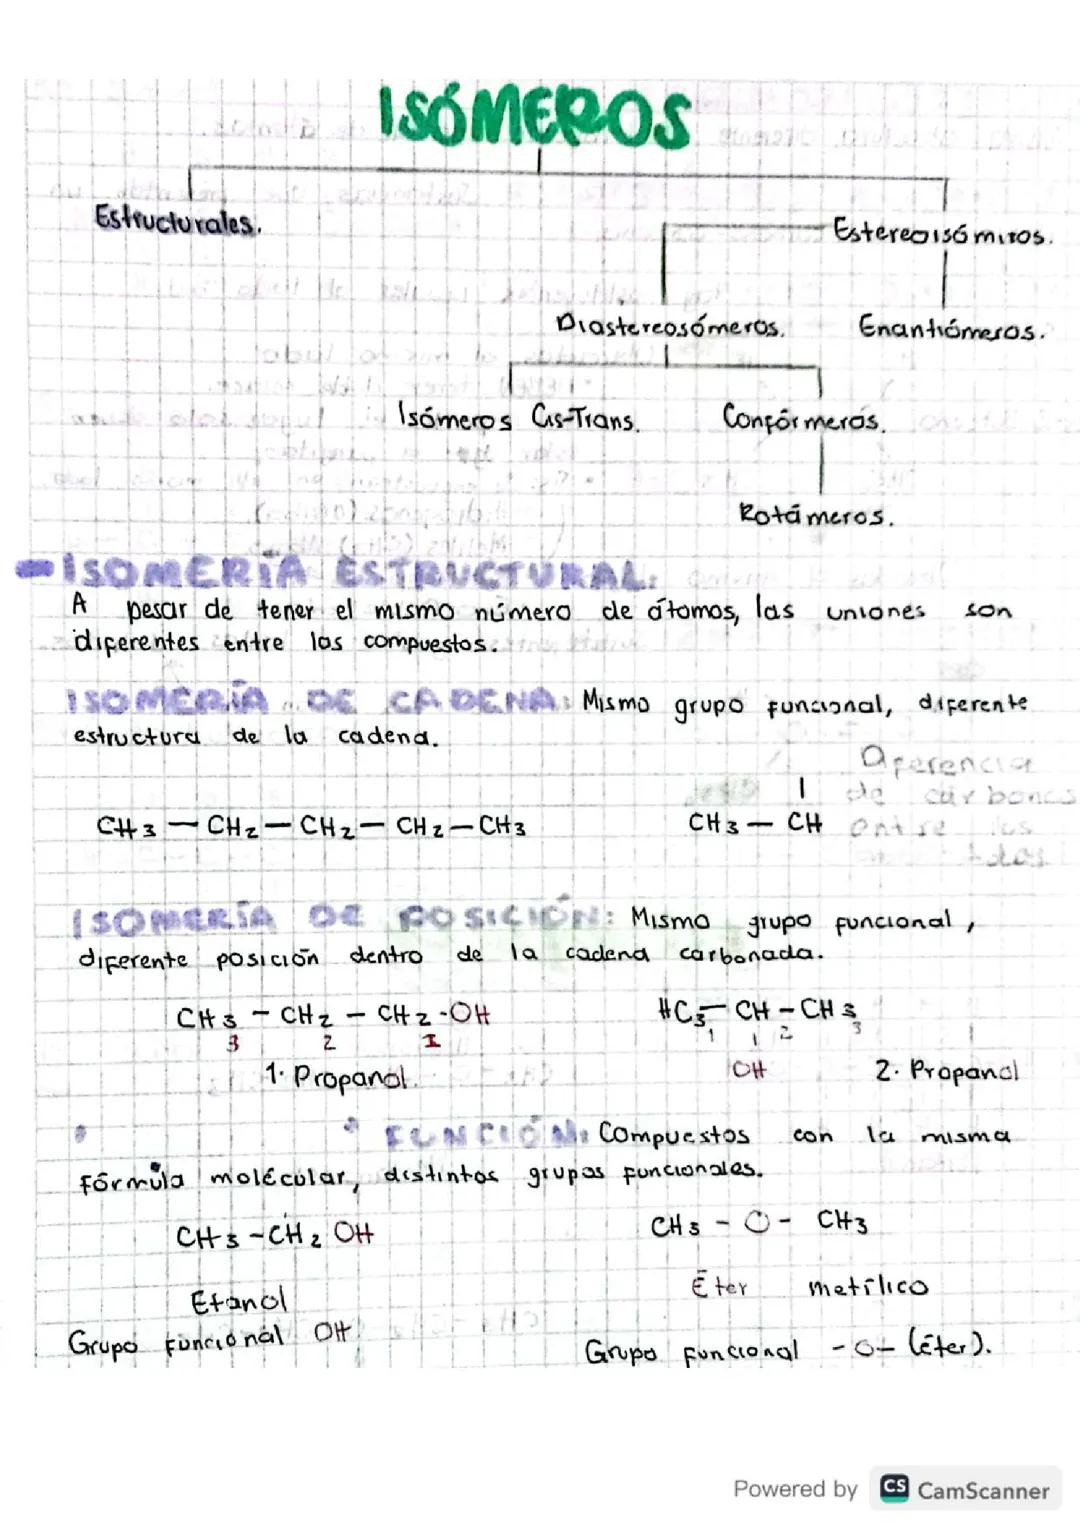 ISÓMEROS
Estructurales.
Estereoisómiros.
Diastereosómeros.
Enantiómeros.
Isómeros Cis-Trans.
Confórmeros.
Rotámeros.
ISOMERÍA ESTRUCTURAL:
A pesar de tener el mismo número de átomos, las uniones son
diferentes entre los compuestos.
ISOMERÍA DE CADENA: Mismo grupo funcional, diferente
estructura de la cadena.
Diferencia
de carbonos
entre los
CH3 — CH2 — CH2 — CH2 — CH3
CH3 — CH
ISOMERÍA DE POSICIÓN: Mismo grupo funcional,
diferente posición dentro de la cadena carbonada.
CH3 - CH2 - CH2 - OH
3 2 1
1. Propanol.
HC3 - CH - CH3
1 2 3
OH
2. Propanol
FUNCIÓN: Compuestos con la misma
fórmula molécular, distintos grupos funcionales.
CH3 - CH2 OH
CH3 - O - CH3
Etanol
Éter metílico
Grupo funcional OH
Grupo funcional -O- (éter).
Powered by CS CamScanner